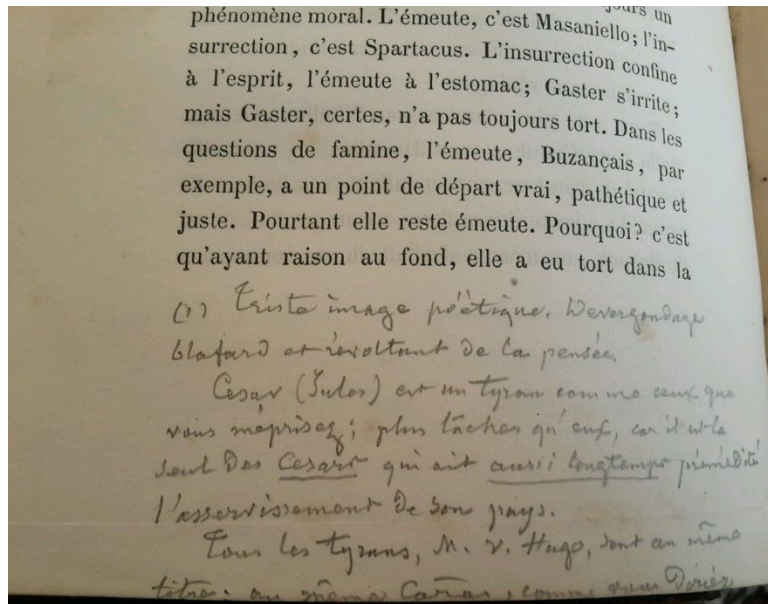 jours un
phénomène moral. L'émeute, c'est Masaniello; l'in-
surrection, c'est Spartacus. L'insurrection confine
à l'esprit, l'émeute à l'estomac; Gaster s'irrite;
mais Gaster, certes, n'a pas toujours tort. Dans les
questions de famine, l'émeute, Buzançais, par
exemple, a un point de départ vrai, pathétique et
juste. Pourtant elle reste émeute. Pourquoi? c'est
qu'ayant raison au fond, elle a eu tort dans la
(1) Triste image poëtique. Devergondage
blafard et révoltant de la pensée.
Cesar (Jules) est un tyran comme ceux que
vous méprisez; plus lâches qu'eux, car il est le
seul des Cesars qui ait aussi longtemps prémédité
l'asservissement de son pays.
Tous les tyrans, M. V. Hugo, sont au même
titre. au même comme vous